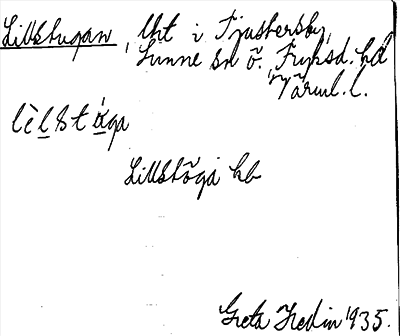 Lillstugan, lht i Tjustersby,
Sunne sn ö. Fryksd. hd
Värml. l.
lèlstA̋ga
Lillstôga hb
Greta Hedin 1935.